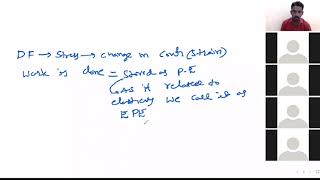 DF → Stress → change in conf (strain)
Work is done = stored as P.E
As it related to
elasticity we call it as
EPE